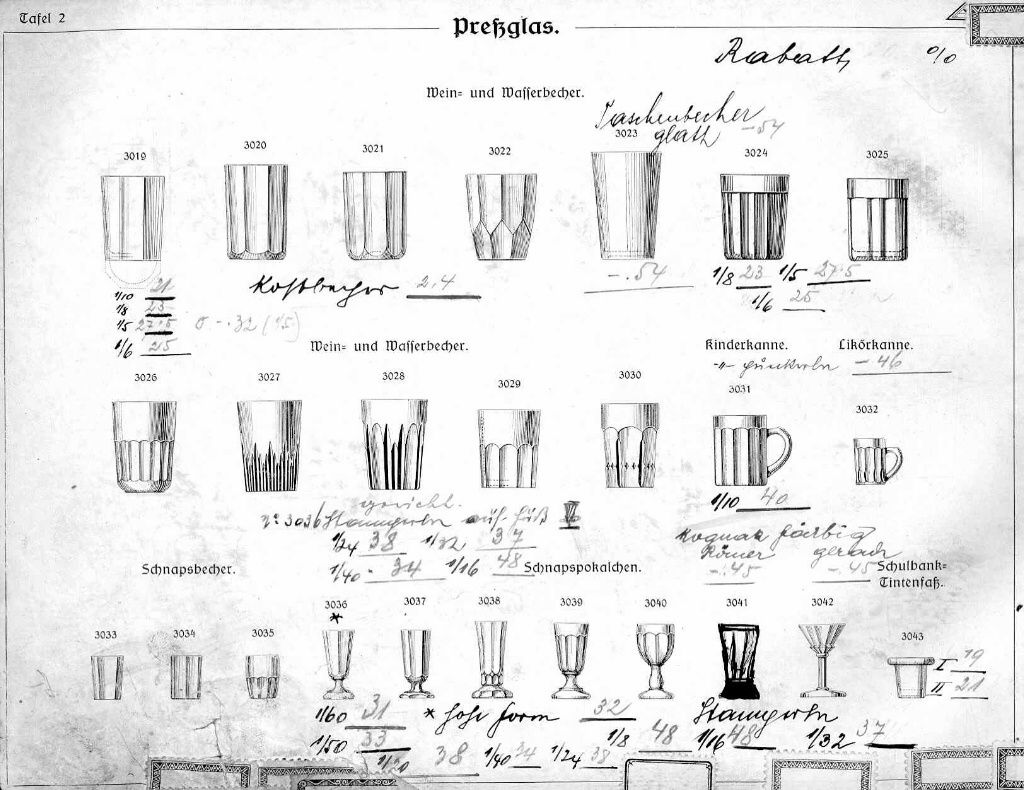 Tafel 2
Preßglas.
Rabatt % 
Wein= und Wasserbecher.
Taschenbecher
glatt -.54
3019 3020 3021 3022 3023 3024 3025
Kostbecher 24
-.54
1/8 23 1/5 27.5
1/6 25
1/10 21
1/8 23
1/5 27.5
1/6 25
-.32 (15)
Wein= und Wasserbecher.
Kinderkanne. Likörkanne.
-.46
3026 3027 3028 3029 3030 3031 3032
1/10 40
No 3036 Stamperln auf Fuß
1/24 38 1/32 37
1/40 -.34 1/16 48
Kognak färbig
Römer gerade
-.45 -.45
Schnapsbecher. Schnapspokalchen. Schulbank=
Tintenfaß.
3033 3034 3035 3036 3037 3038 3039 3040 3041 3042 3043
*
I 19
II 21
1/60 31 * hohe Form 32 Stamperln
1/50 33 1/8 48 1/16 48 1/32 37
1/20 38 1/40 34 1/24 38